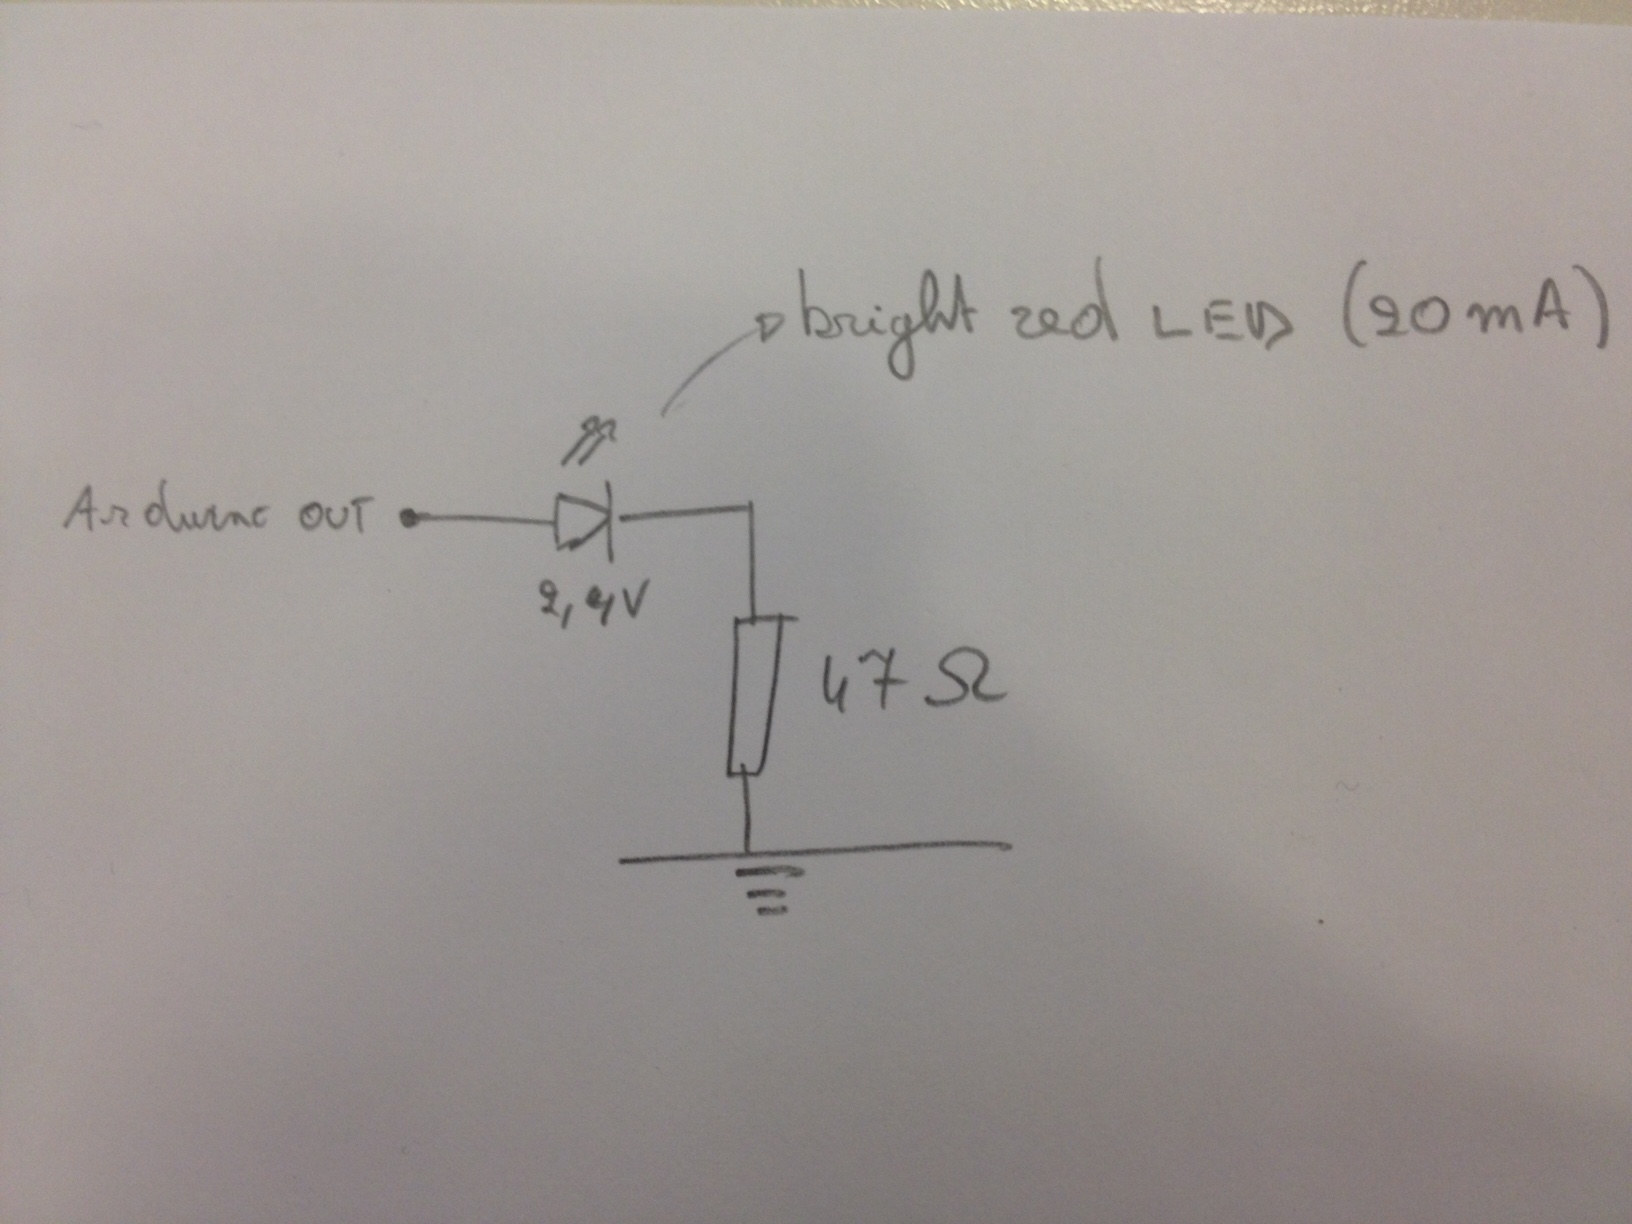 bright red LED (20mA)
Arduino OUT
2,4V
47Ω